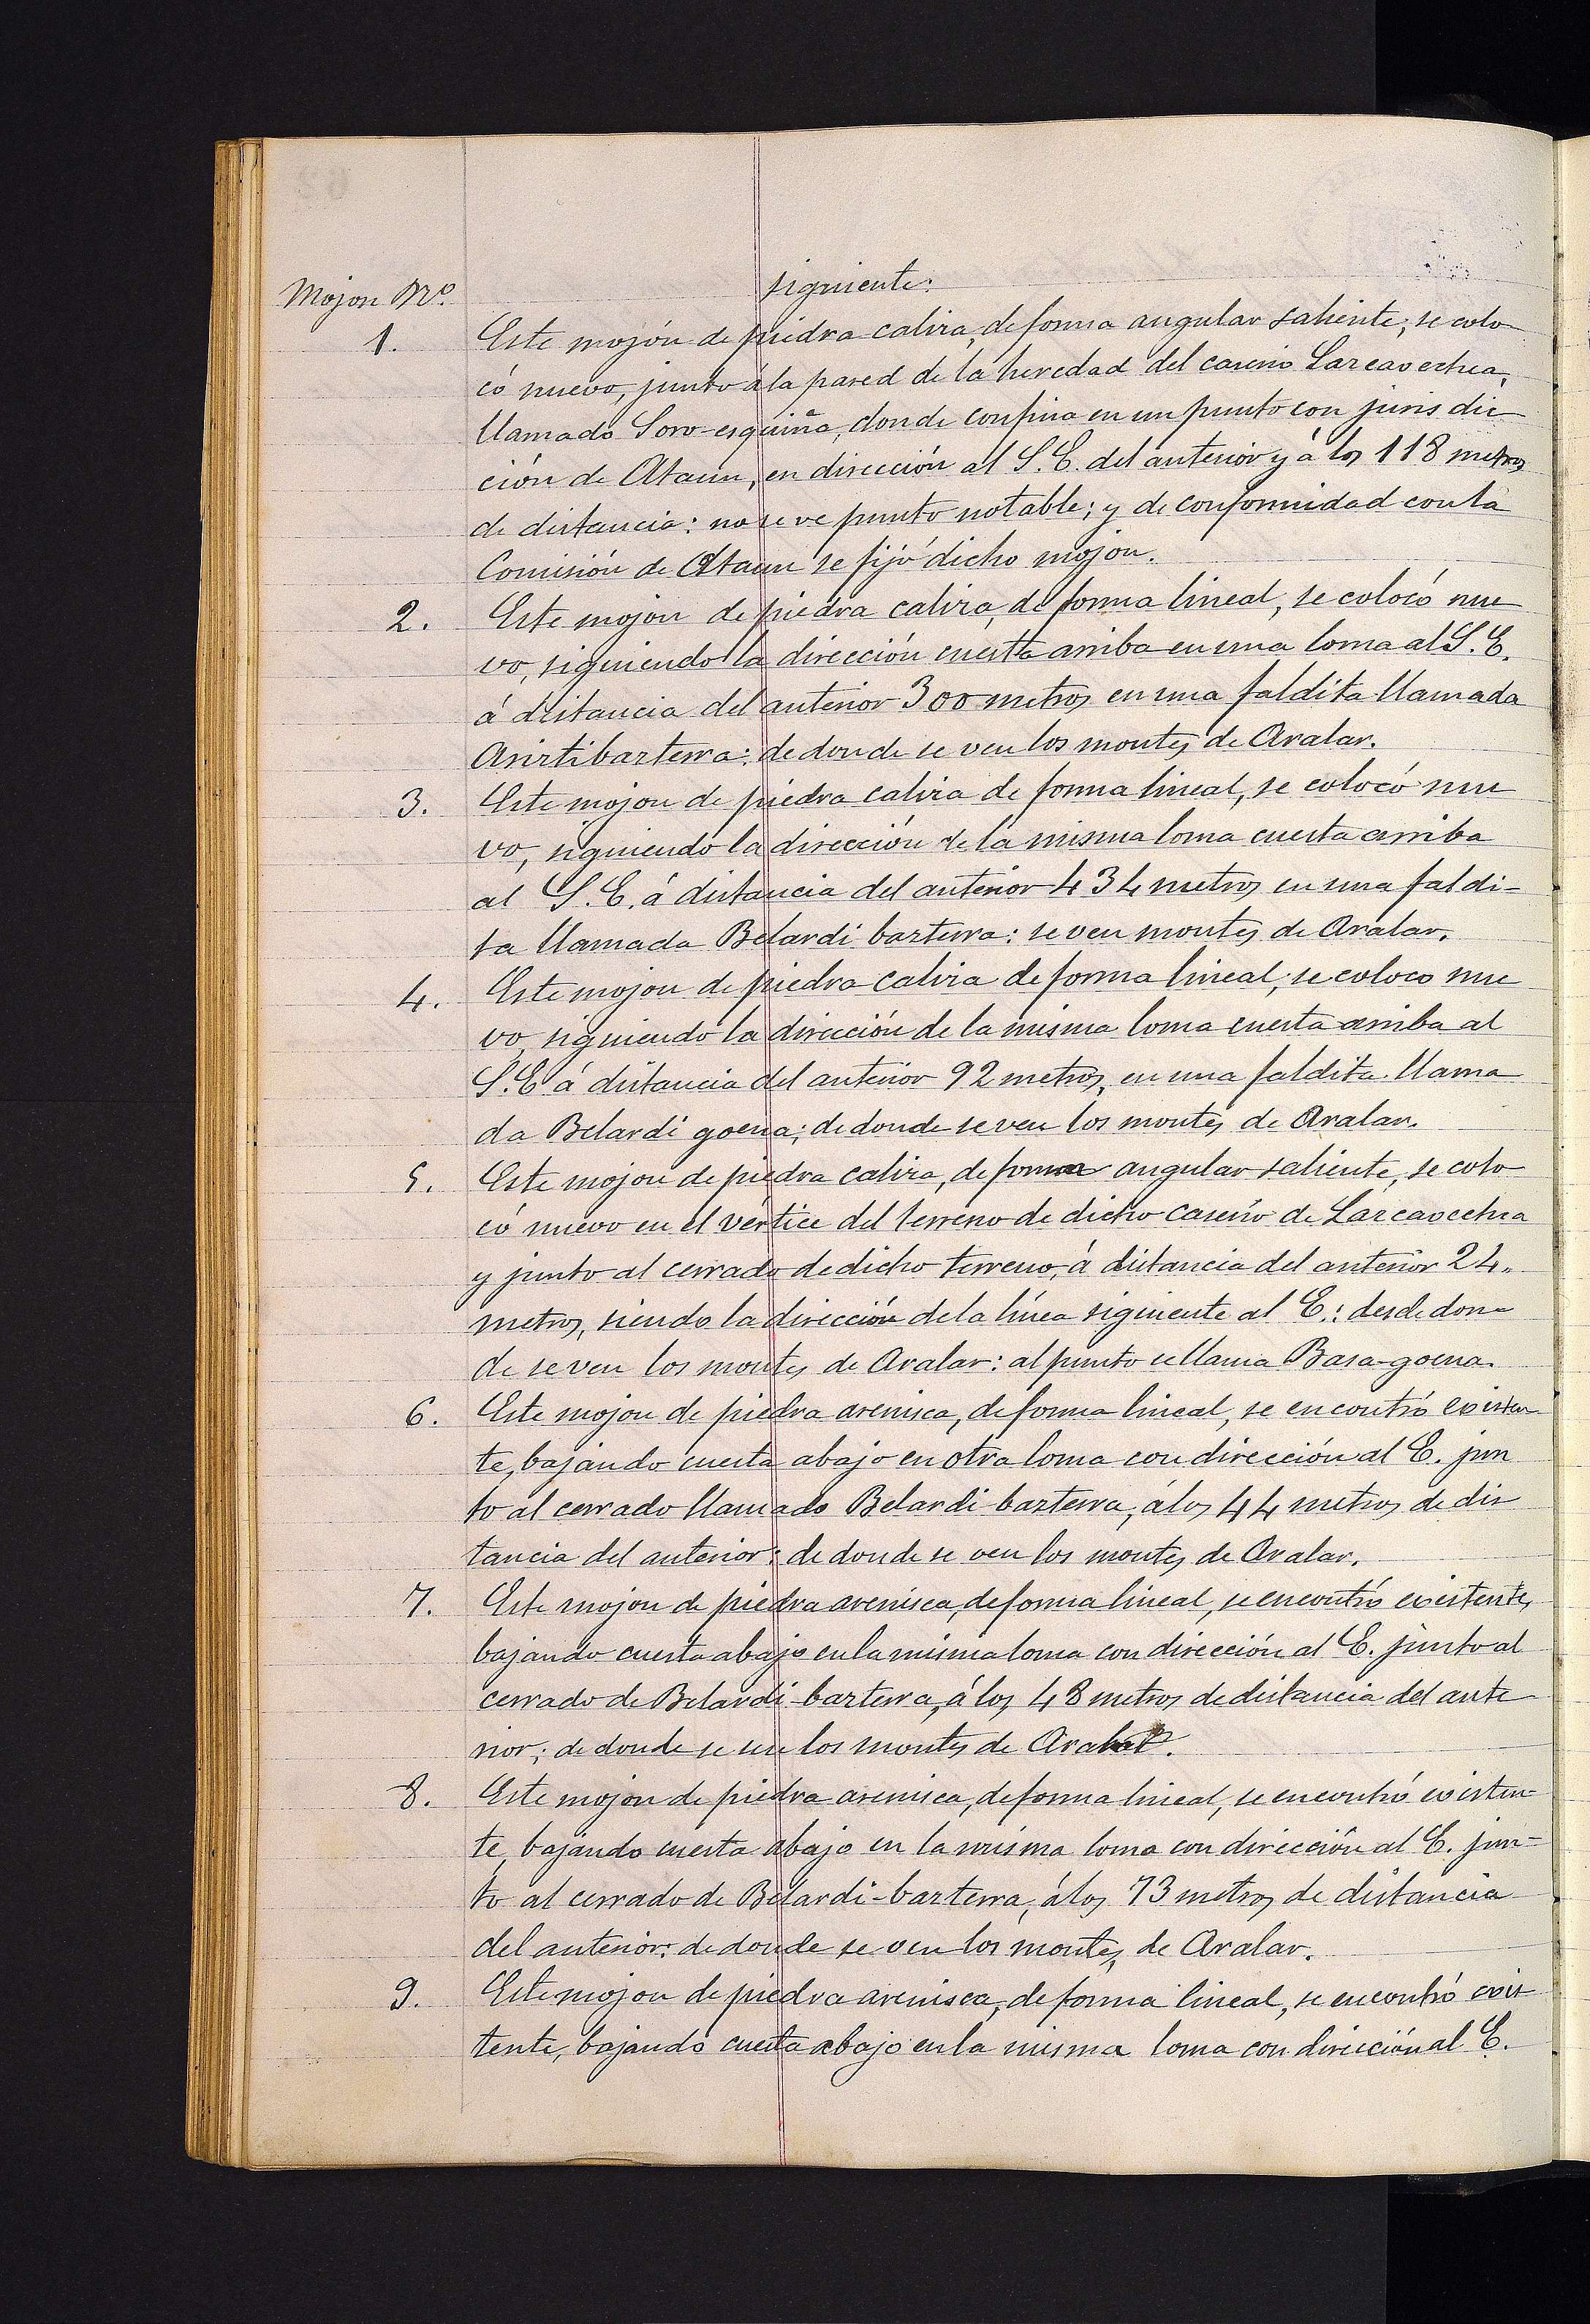 siguiente:
Mojon Nº
1. Este mojón de piedra caliza, de forma angular saliente, se colo
có nuevo, junto á la pared de la heredad del caserio Larcaoechea,
llamado Soro-esquiña, donde confina en un punto con jurisdic
ción de Ataun, en dirección al S.E. del anterior y á los 118 metros
de distancia: no se ve punto notable; y de conformidad con la
Comisión de Ataun se fijó dicho mojon.
2. Este mojon de piedra caliza, de forma lineal, se colocó nue
vo, siguiendo la dirección cuesta arriba en una loma al S.E.
á distancia del anterior 300 metros en una faldita llamada
Arizti bazterra: de donde se ven los montes de Aralar.
3. Este mojon de piedra caliza de forma lineal, se colocó nue
vo, siguiendo la dirección de la misma loma cuesta arriba
al S.E. á distancia del anterior 434 metros en una faldi-
ta llamada Belardi bazterra: se ven montes de Aralar.
4. Este mojon de piedra caliza de forma lineal, se coloco nue
vo, siguiendo la dirección de la misma loma cuesta arriba al
S.E á distancia del anterior 92 metros, en una faldita llama
da Belardi goena; de donde se ven los montes de Aralar.
5. Este mojon de piedra caliza, de forma angular saliente, se colo
có nuevo en el vértice del terreno de dicho caserio de Larcaoechea
y junto al cerrado de dicho terreno, á distancia del anterior 24.
metros, siendo la dirección de la línea siguiente al E.: desde don-
de se ven los montes de Aralar: al punto se llama Basa-goena.
6. Este mojon de piedra arenisca, de forma lineal, se encontró existen
te, bajando cuesta abajo en otra loma con dirección al E. jun
to al cerrado llamado Belardi-bazterra, á los 44 metros de dis
tancia del anterior: de donde se ven los montes de Aralar.
7. Este mojon de piedra arenisca, de forma lineal, se encontró existente,
bajando cuesta abajo en la misma loma con dirección al E. junto al
cerrado de Belardi-bazterra, á los 48 metros de distancia del ante
rior; de donde se ven los montes de Aralar.
8. Este mojon de piedra arenisca, de forma lineal, se encontró existen-
te, bajando cuesta abajo en la misma loma con dirección al E. jun-
to al cerrado de Belardi-bazterra, á los 73 metros de distancia
del anterior: de donde se ven los montes de Aralar.
9. Este mojon de piedra arenisca, de forma lineal, se encontró exis
tente, bajando cuesta abajo en la misma loma con dirección al E.